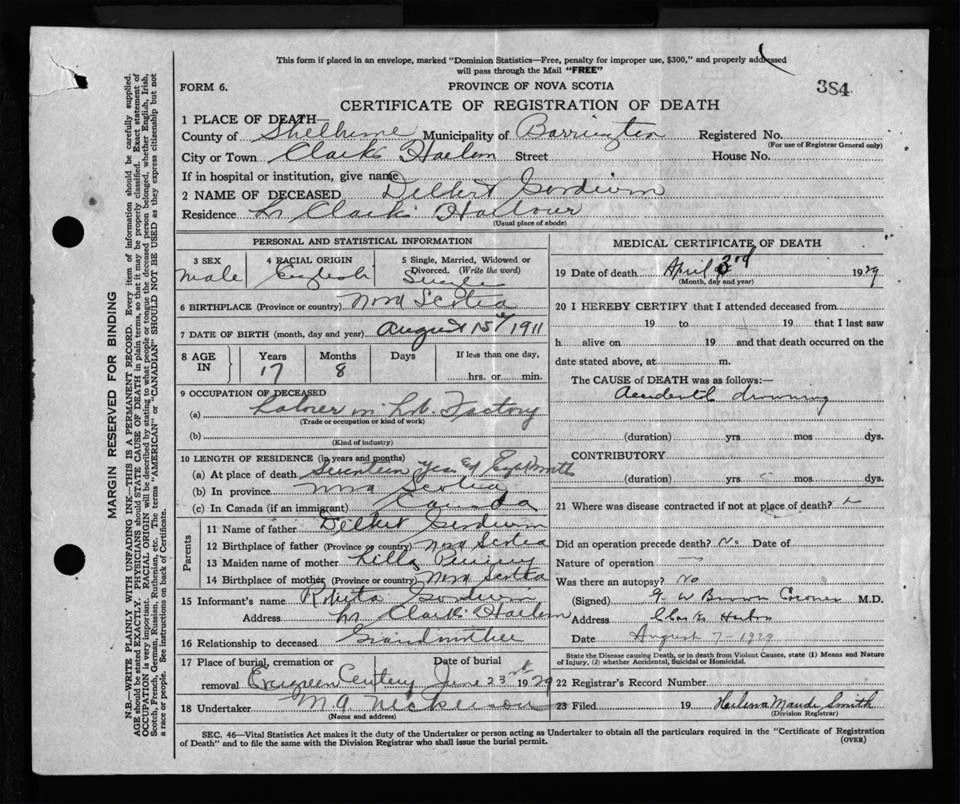 This form if placed in an envelope, marked "Dominion Statistics—Free, penalty for improper use, $300," and properly addressed
will pass through the Mail "FREE"
384
FORM 6.
PROVINCE OF NOVA SCOTIA
CERTIFICATE OF REGISTRATION OF DEATH
1 PLACE OF DEATH—
County of Shelburne Municipality of Barrington Registered No.
(For use of Registrar General only)
City or Town Clarks Harbor Street House No.
If in hospital or institution, give name
2 NAME OF DECEASED Delbert Goodwin
Residence Clark Harbour
(Usual place of abode)
PERSONAL AND STATISTICAL INFORMATION
3 SEX
male
4 RACIAL ORIGIN
English
5 Single, Married, Widowed or
Divorced. (Write the word)
Single
6 BIRTHPLACE (Province or country) Nova Scotia
7 DATE OF BIRTH (month, day and year) August 15th 1911
8 AGE
IN
Years
17
Months
8
Days
If less than one day,
hrs. or min.
9 OCCUPATION OF DECEASED
(a) Laborer in Factory
(Trade or occupation or kind of work)
(b)
(Kind of industry)
10 LENGTH OF RESIDENCE (in years and months)
(a) At place of death Seventeen Years
(b) In province Nova Scotia
(c) In Canada (if an immigrant) Canada
Parents
11 Name of father Delbert Goodwin
12 Birthplace of father (Province or country) Nova Scotia
13 Maiden name of mother
14 Birthplace of mother (Province or country) Nova Scotia
15 Informant's name Goodwin
Address Clark Harbor
16 Relationship to deceased Grandmother
17 Place of burial, cremation or
removal Evergreen
Date of burial
June 23rd 1929
18 Undertaker M. A. Nickerson
(Name and address)
MEDICAL CERTIFICATE OF DEATH
19 Date of death April 3rd 1929
(Month, day and year)
20 I HEREBY CERTIFY that I attended deceased from
19 to 19 that I last saw
h alive on 19 and that death occurred on the
date stated above, at m.
The CAUSE of DEATH was as follows:—
Accidental drowning
(duration) yrs mos dys.
CONTRIBUTORY
(duration) yrs mos dys.
21 Where was disease contracted if not at place of death?
Did an operation precede death? No Date of
Nature of operation
Was there an autopsy? No
(Signed) G. W. Brown Coroner M.D.
Address Clarks Harbor
Date August 7 - 1929
State the Disease causing Death, or in death from Violent Causes, state (1) Means and Nature
of Injury, (2) whether Accidental, Suicidal or Homicidal.
22 Registrar's Record Number
23 Filed 19 Helena Maude Smith
(Division Registrar)
SEC. 46—Vital Statistics Act makes it the duty of the Undertaker or person acting as Undertaker to obtain all the particulars required in the "Certificate of Registration
of Death" and to file the same with the Division Registrar who shall issue the burial permit.
(OVER)
MARGIN RESERVED FOR BINDING
N.B.—WRITE PLAINLY WITH UNFADING INK—THIS IS A PERMANENT RECORD. Every item of information should be carefully supplied.
AGE should be stated EXACTLY. PHYSICIANS should STATE CAUSE OF DEATH in plain terms, so that it may be properly classified. Exact statement of
OCCUPATION is very important. RACIAL ORIGIN will be described by stating to what people or tongue the deceased person belonged, whether English, Irish,
Scotch, French, German, Russian, Ruthenian, etc. The terms "AMERICAN" or "CANADIAN" SHOULD NOT BE USED as they express citizenship but not
a race or people. See instructions on back of Certificate.